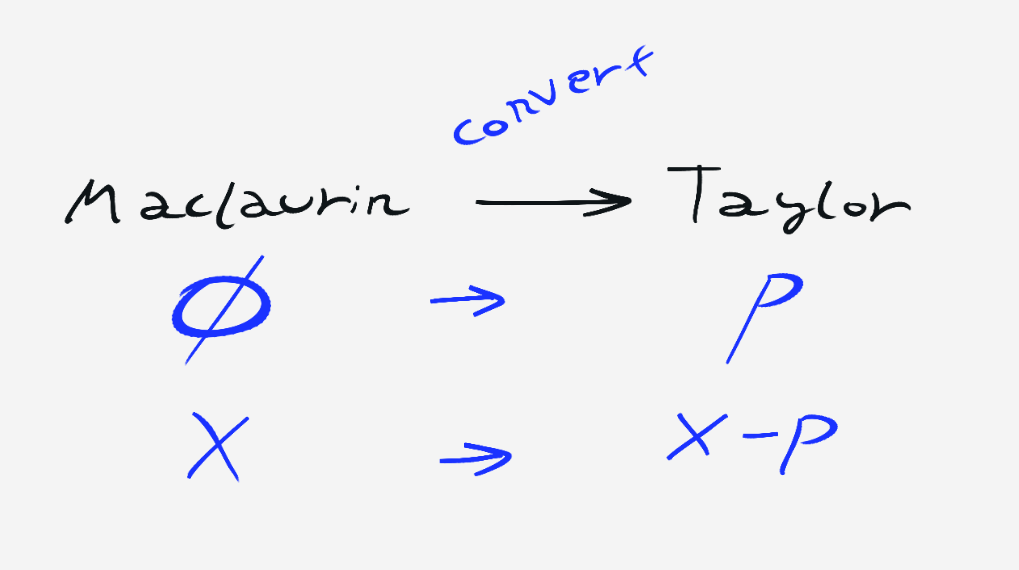 convert
Maclaurin → Taylor
0 → p
x → x-p